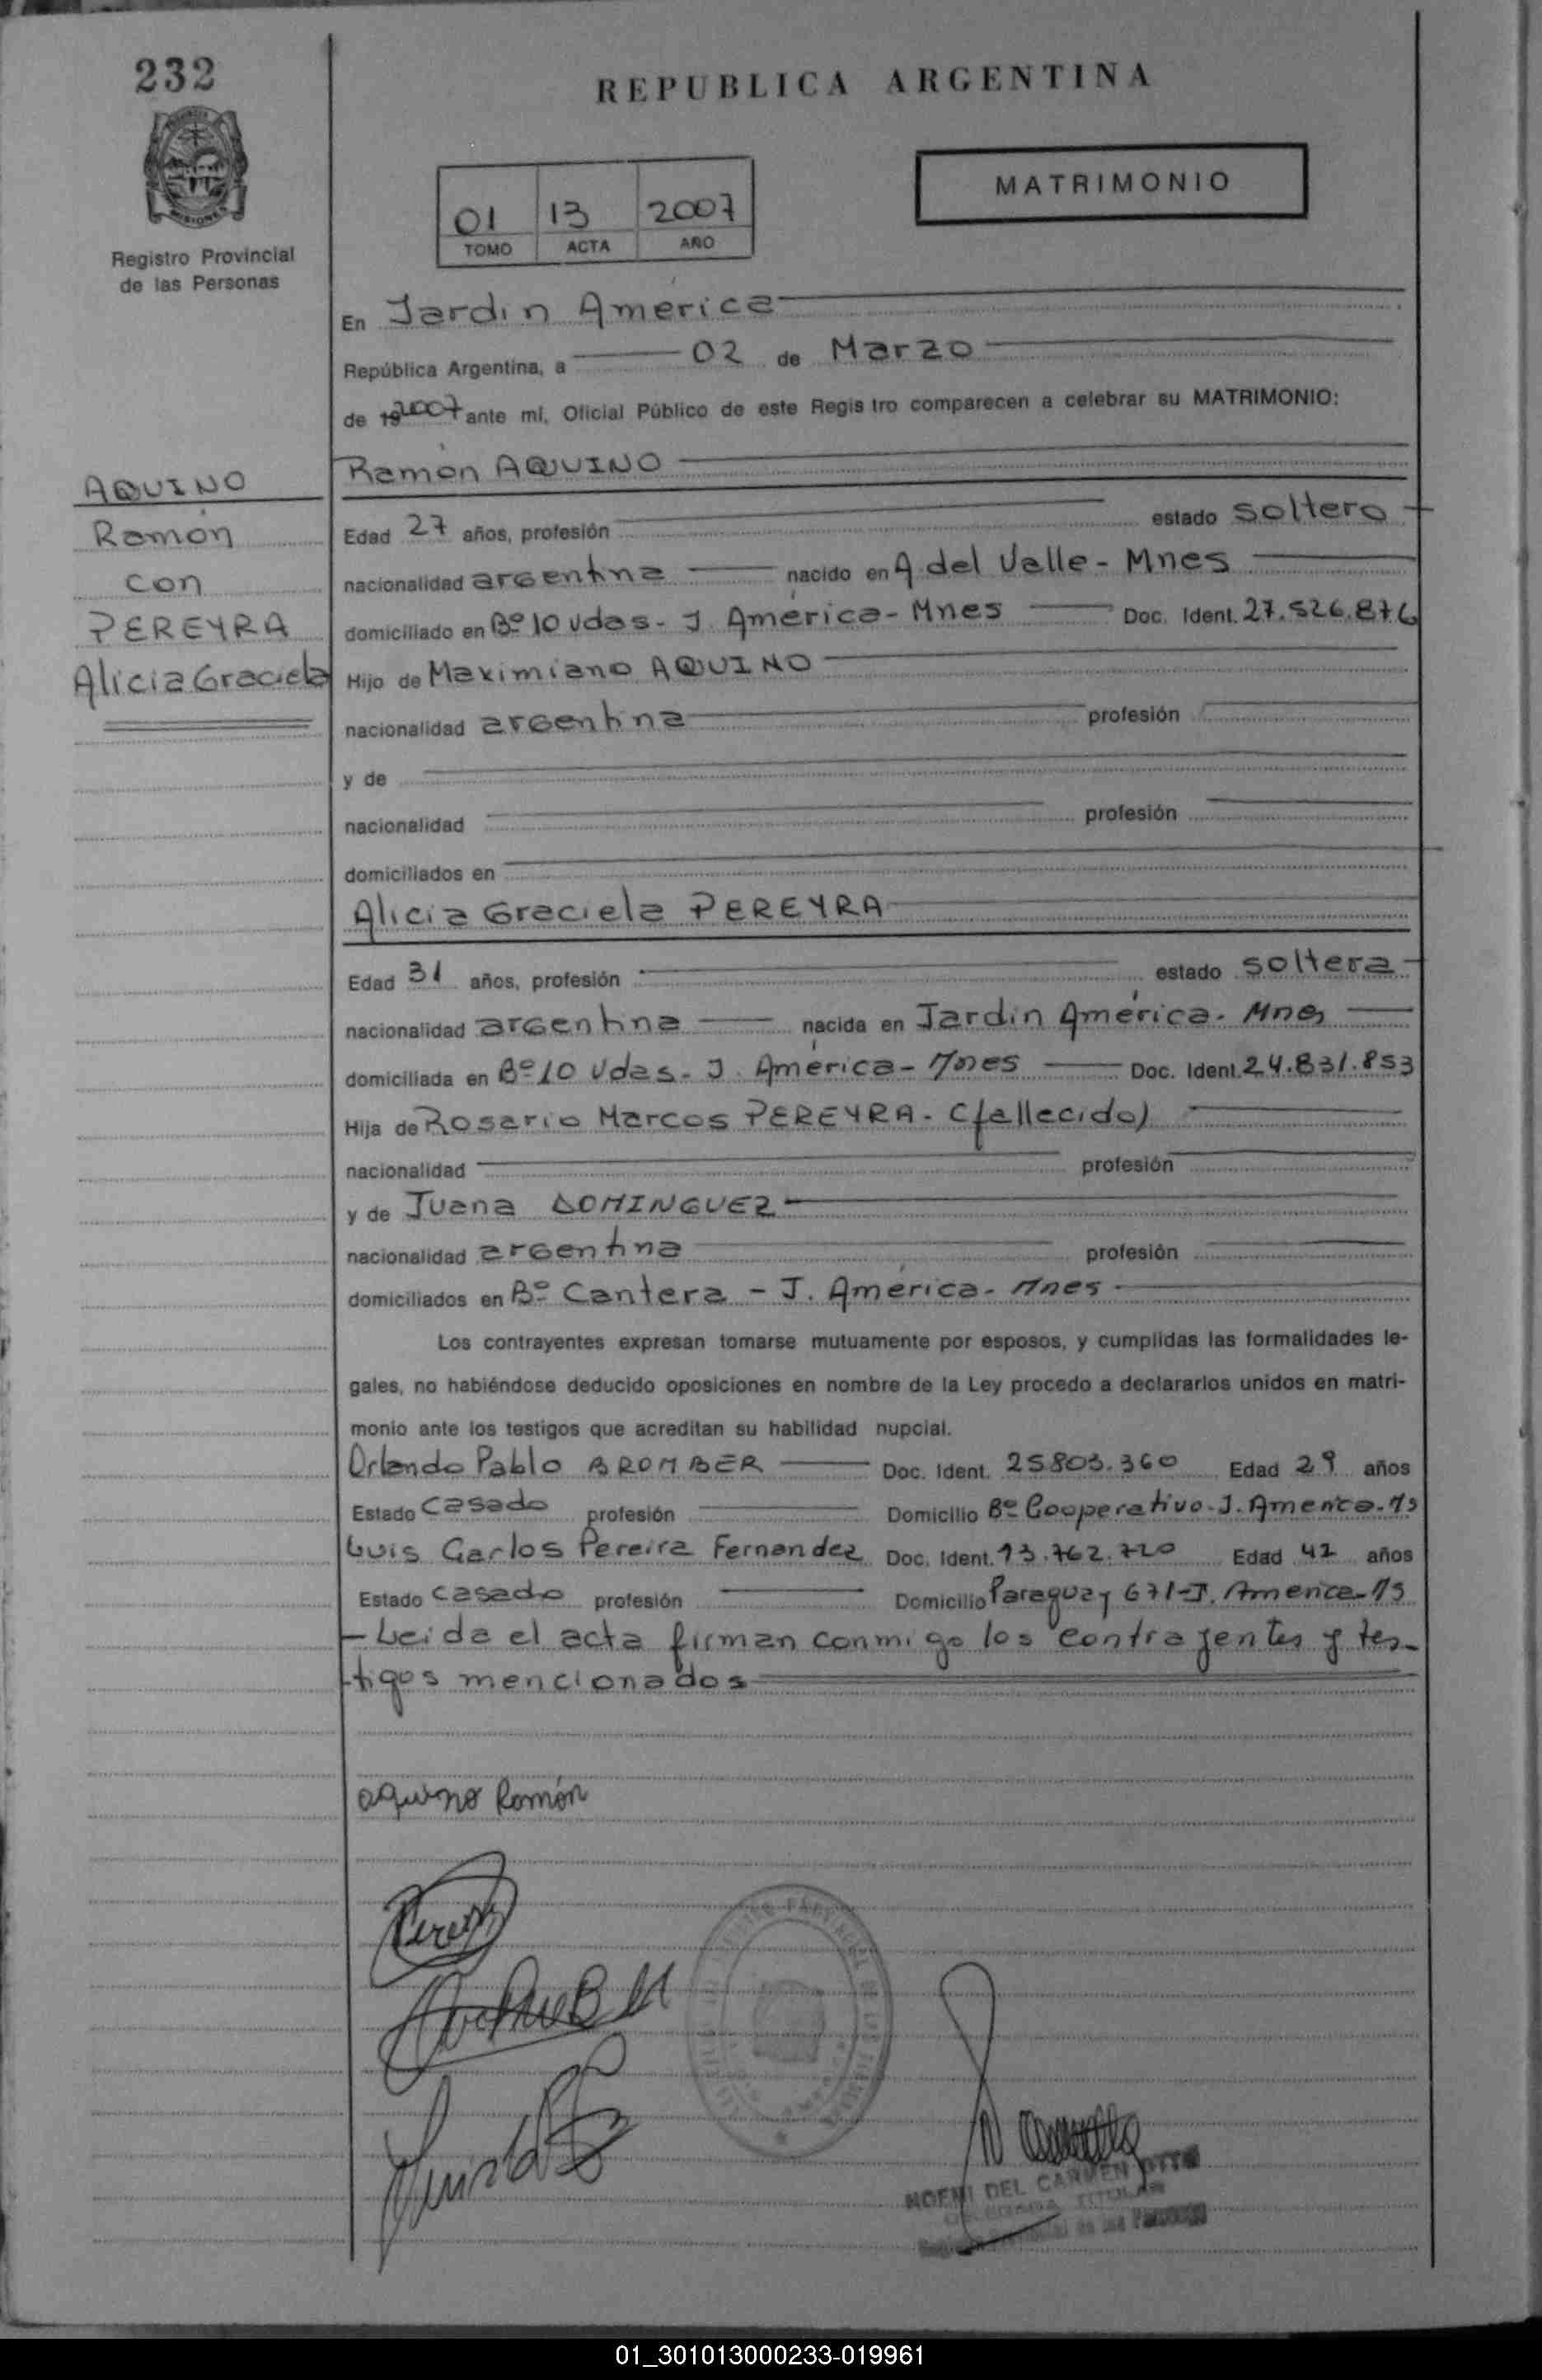 232
REPUBLICA ARGENTINA
MISIONES
Registro Provincial
de las Personas
01 13 2007
TOMO ACTA AÑO
MATRIMONIO
En Jardin América
República Argentina, a 02 de Marzo
de 19 2007 ante mí, Oficial Público de este Registro comparecen a celebrar su MATRIMONIO:
AQUINO
Ramón
con
PEREYRA
Alicia Graciela
Ramón AQUINO
Edad 27 años, profesión estado soltero
nacionalidad argentina nacido en A del Valle - Mnes
domiciliado en Bº 10 Vdas - J. América - Mnes Doc. Ident. 27.526.876
Hijo de Maximiano AQUINO
nacionalidad argentina profesión
y de
nacionalidad profesión
domiciliados en
Alicia Graciela PEREYRA
Edad 31 años, profesión estado soltera
nacionalidad argentina nacida en Jardín América - Mnes
domiciliada en Bº 10 Vdas - J. América - Mnes Doc. Ident. 24.831.853
Hija de Rosario Marcos PEREYRA - (fallecido)
nacionalidad profesión
y de Juana DOMINGUEZ
nacionalidad argentina profesión
domiciliados en Bº Cantera - J. América - Mnes
Los contrayentes expresan tomarse mutuamente por esposos, y cumplidas las formalidades le-
gales, no habiéndose deducido oposiciones en nombre de la Ley procedo a declararlos unidos en matri-
monio ante los testigos que acreditan su habilidad nupcial.
Orlando Pablo BROMBER Doc. Ident. 25.803.360 Edad 29 años
Estado casado profesión Domicilio Bº Cooperativo - J. America - Ms
Luis Carlos Pereira Fernandez Doc. Ident. 93.762.720 Edad 42 años
Estado casado profesión Domicilio Paraguay 671 - J. America - Ms
- Leida el acta firman conmigo los contrayentes y tes-
tigos mencionados
Aquino Ramón
NOEMI DEL CARMEN OTTO
TITULAR
de las Personas
01_301013000233-019961